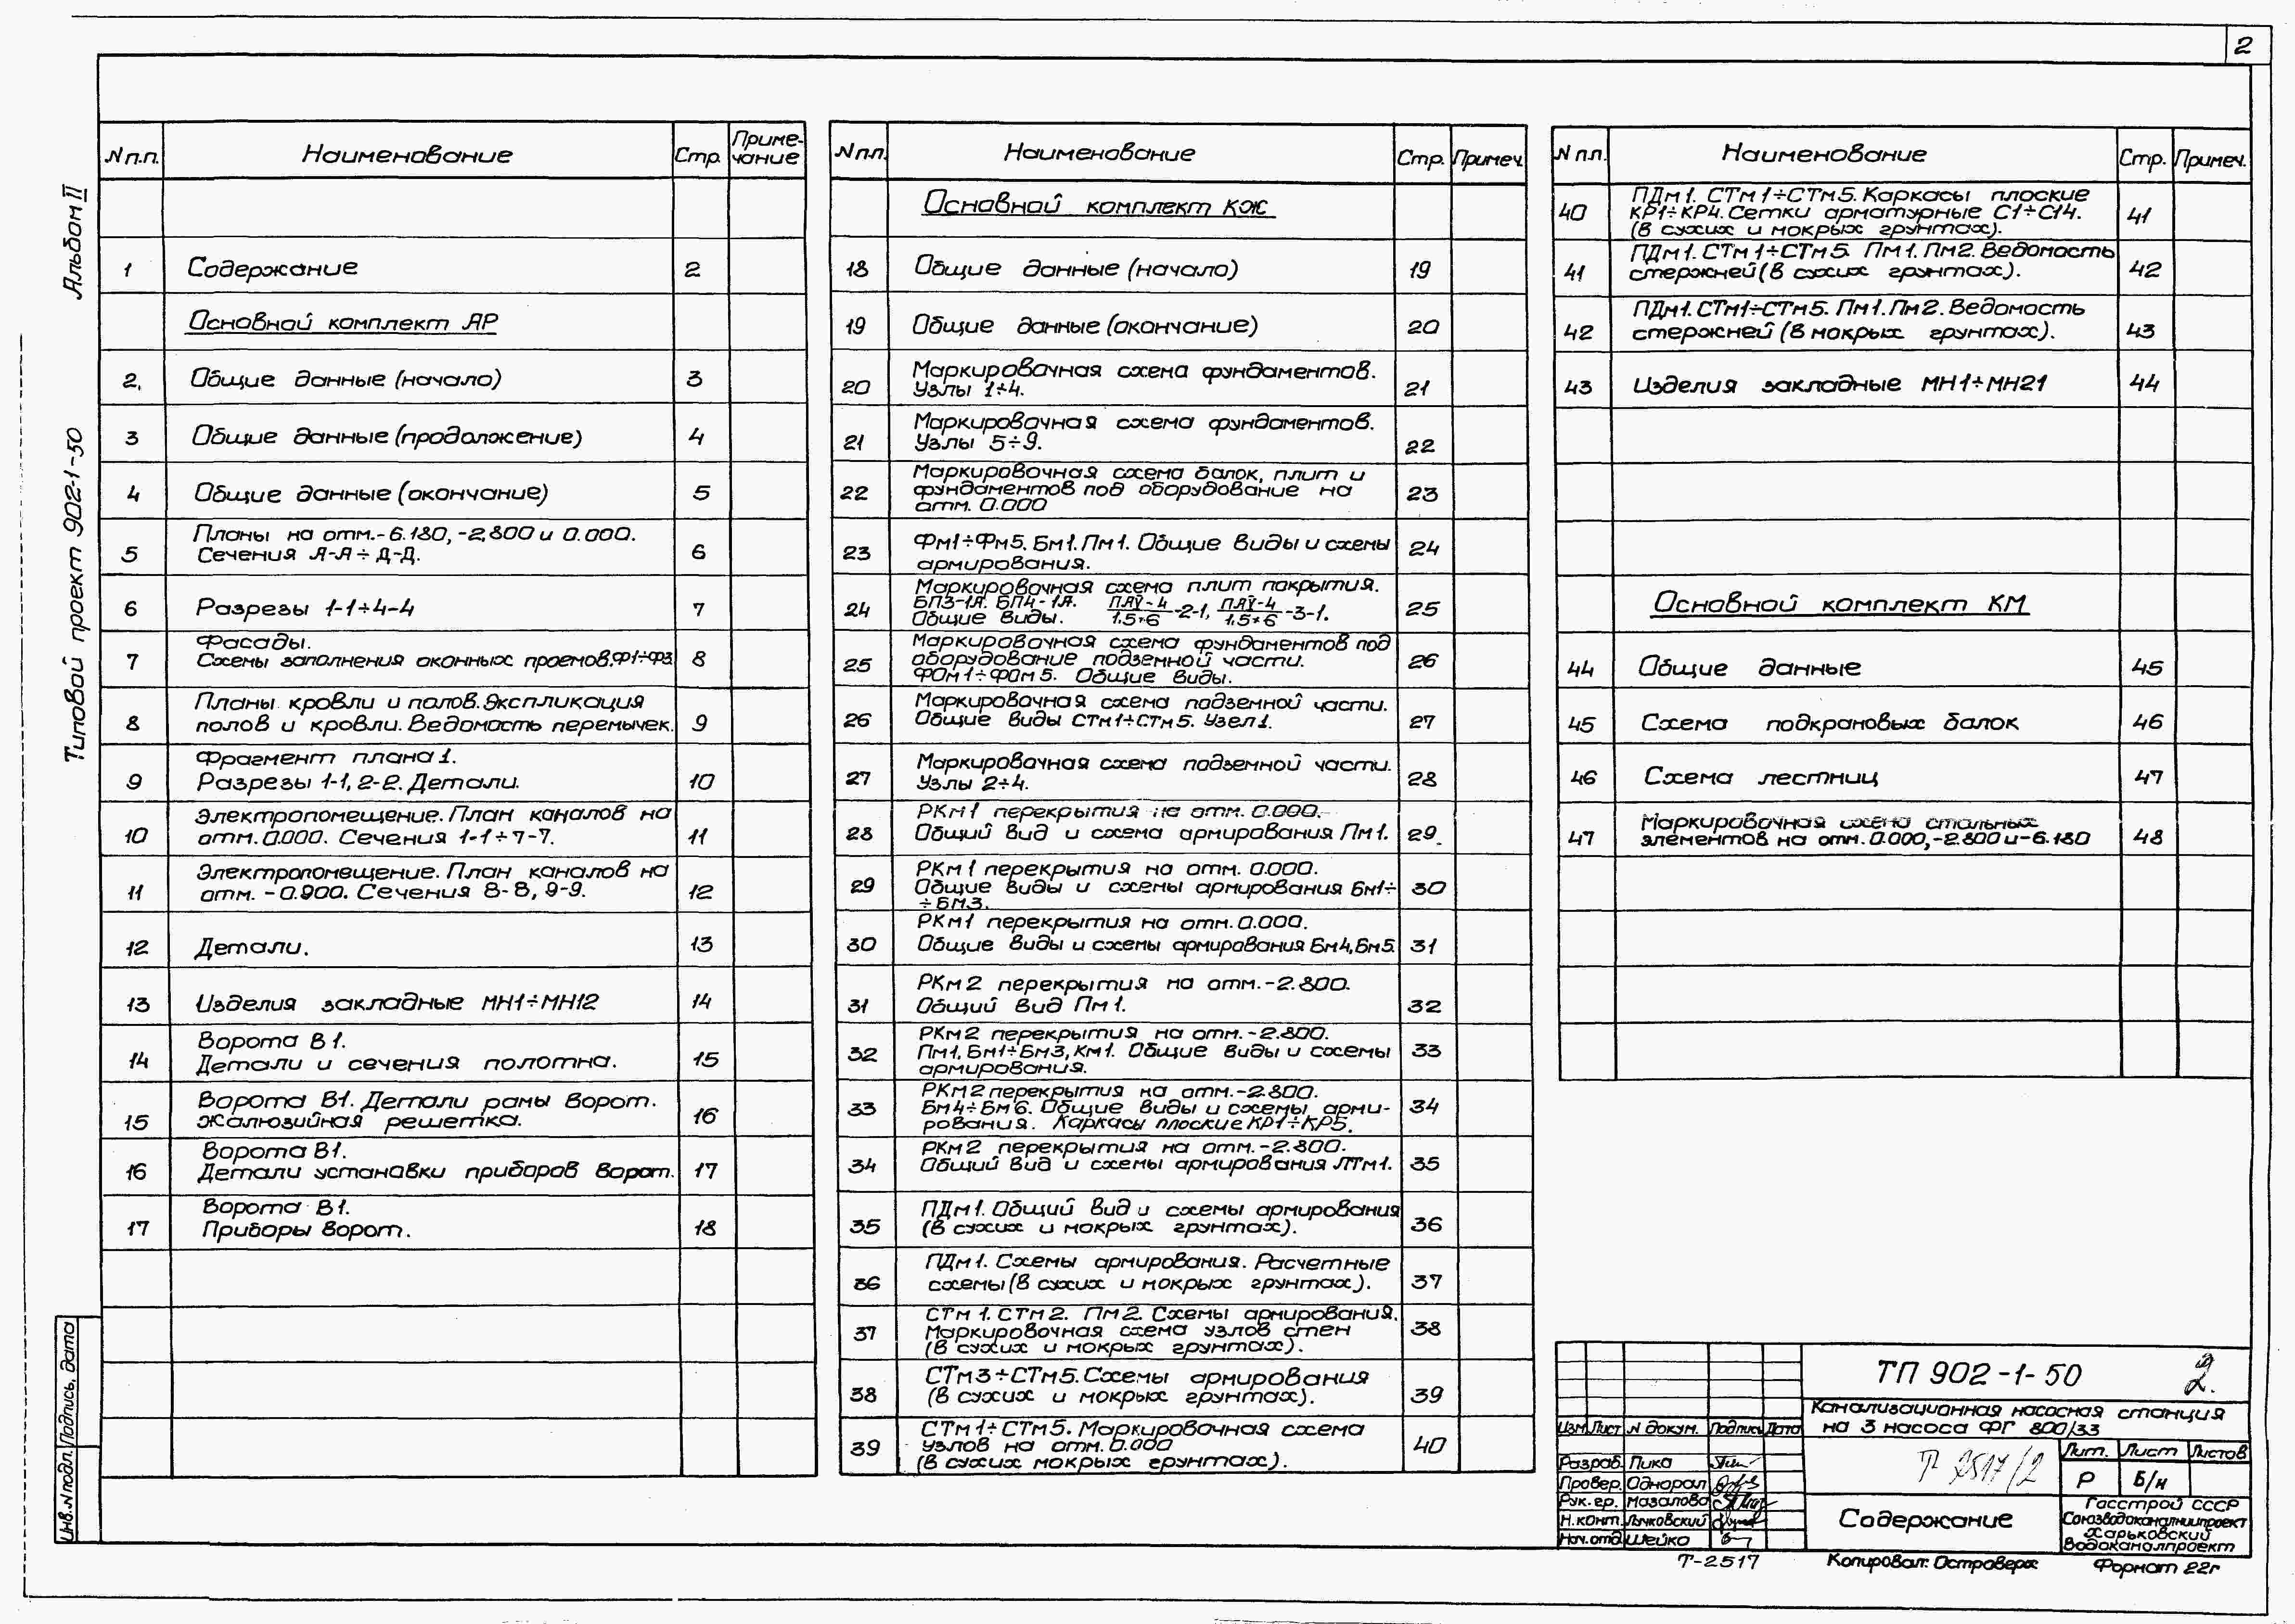 2
Альбом II
Типовой проект 902-1-50
Инв.N подл. Подпись, дата
N п.п. Наименование Стр. Приме-
чание
1 Содержание 2
Основной комплект АР
2. Общие данные (начало) 3
3 Общие данные (продолжение) 4
4 Общие данные (окончание) 5
Планы на отм.-6.180, -2.800 и 0.000.
5 Сечения А-А÷Д-Д. 6
6 Разрезы 1-1÷4-4 7
Фасады.
7 Схемы заполнения оконных проемов.Ф1÷Ф3. 8
Планы кровли и полов. Экспликация
8 полов и кровли. Ведомость перемычек. 9
Фрагмент плана 1.
9 Разрезы 1-1, 2-2. Детали. 10
Электропомещение. План каналов на
10 отм. 0.000. Сечения 1-1÷7-7. 11
Электропомещение. План каналов на
11 отм. -0.900. Сечения 8-8, 9-9. 12
12 Детали. 13
13 Изделия закладные МН1÷МН12 14
Ворота В1.
14 Детали и сечения полотна. 15
Ворота В1. Детали рамы ворот.
15 Жалюзийная решетка. 16
Ворота В1.
16 Детали установки приборов ворот. 17
Ворота В1.
17 Приборы ворот. 18
N п.п. Наименование Стр. Примеч.
Основной комплект КЖ
18 Общие данные (начало) 19
19 Общие данные (окончание) 20
Маркировочная схема фундаментов.
20 Узлы 1÷4. 21
Маркировочная схема фундаментов.
21 Узлы 5÷9. 22
Маркировочная схема балок, плит и
22 фундаментов под оборудование на 23
отм. 0.000
23 Фм1÷Фм5. Бм1. Пм1. Общие виды и схемы 24
армирования.
Маркировочная схема плит покрытия.
24 БП3-1А. БП4-1А. ПАУ-4/1,5×6-2-1, ПАУ-4/1,5×6-3-1. 25
Общие виды.
Маркировочная схема фундаментов под
25 оборудование подземной части. 26
ФОм1÷ФОм5. Общие виды.
Маркировочная схема подземной части.
26 Общие виды СТм1÷СТм5. Узел 1. 27
Маркировочная схема подземной части.
27 Узлы 2÷4. 28
РКм1 перекрытия на отм. 0.000.
28 Общий вид и схема армирования Пм1. 29
РКм1 перекрытия на отм. 0.000.
29 Общие виды и схемы армирования Бм1÷ 30
÷Бм3.
РКм1 перекрытия на отм. 0.000.
30 Общие виды и схемы армирования Бм4, Бм5. 31
РКм2 перекрытия на отм.-2.800.
31 Общий вид Пм1. 32
РКм2 перекрытия на отм.-2.800.
32 Пм1, Бм1÷Бм3, Км1. Общие виды и схемы 33
армирования.
РКм2 перекрытия на отм.-2.800.
33 Бм4÷Бм6. Общие виды и схемы арми- 34
рования. Каркасы плоские КР1÷КР5.
РКм2 перекрытия на отм.-2.800.
34 Общий вид и схемы армирования ЛТм1. 35
ПДм1. Общий вид и схемы армирования
35 (в сухих и мокрых грунтах). 36
ПДм1. Схемы армирования. Расчетные
36 схемы (в сухих и мокрых грунтах). 37
СТм1. СТм2. Пм2. Схемы армирования.
37 Маркировочная схема узлов стен 38
(в сухих и мокрых грунтах).
СТм3÷СТм5. Схемы армирования
38 (в сухих и мокрых грунтах). 39
СТм1÷СТм5. Маркировочная схема
39 узлов на отм. 0.000 40
(в сухих мокрых грунтах).
N п.п. Наименование Стр. Примеч.
ПДм1. СТм1÷СТм5. Каркасы плоские
40 КР1÷КР4. Сетки арматурные С1÷С14. 41
(в сухих и мокрых грунтах).
ПДм1. СТм1÷СТм5. Пм1. Пм2. Ведомость
41 стержней (в сухих грунтах). 42
ПДм1. СТм1÷СТм5. Пм1. Пм2. Ведомость
42 стержней (в мокрых грунтах). 43
43 Изделия закладные МН1÷МН21 44
Основной комплект КМ
44 Общие данные 45
45 Схема подкрановых балок 46
46 Схема лестниц 47
Маркировочная схема стальных
47 элементов на отм. 0.000, -2.800 и -6.180 48
ТП 902-1-50 2.
Канализационная насосная станция
на 3 насоса ФГ 800/33
Изм. Лист N докум. Подпись Дата
Разраб. Пика
Провер. Однорал
Рук.гр. Мазалова
Н.конт. Лычковский
Нач.отд Шейко
Т 2517/2
Лит. Лист Листов
Р Б/н
Содержание
Госстрой СССР
Союзводоканалниипроект
Харьковский
Водоканалпроект
Т-2517 Копировал: Островерх Формат 22г